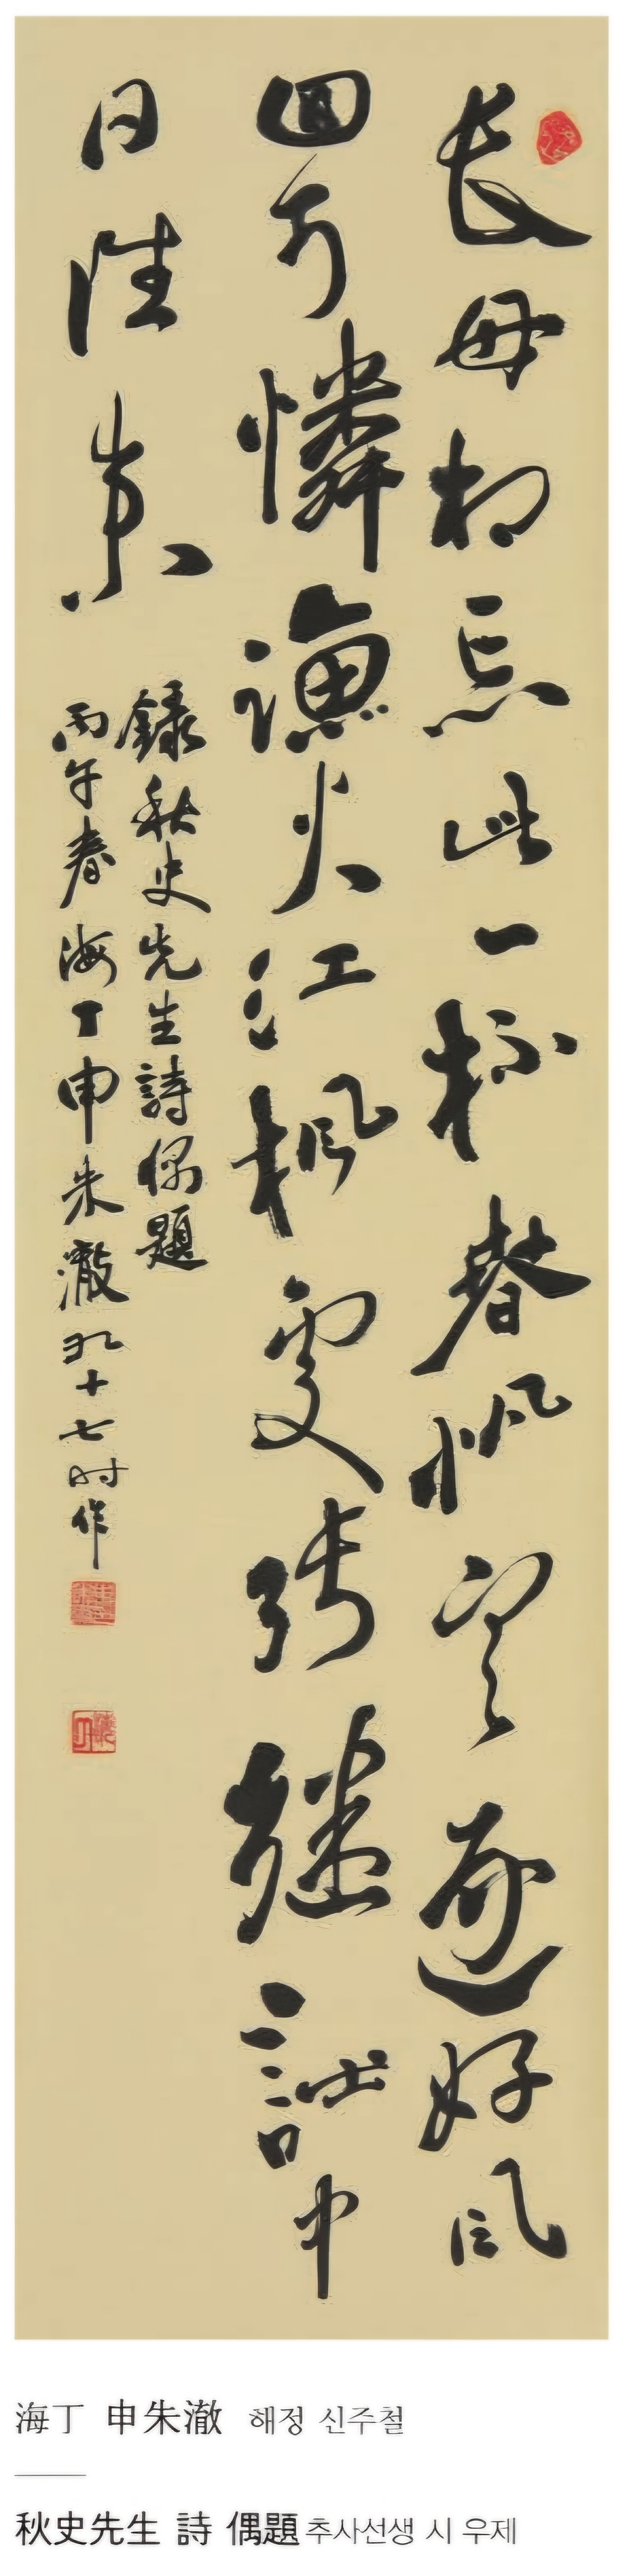 長毋相忘此一杯春帆逐好風
回可憐漁火江楓處張繼詩中
日往來
錄秋史先生詩偶題
丙午春海丁申朱澈九十七时作
海丁 申朱澈 해정 신주철
秋史先生 詩 偶題 추사선생 시 우제